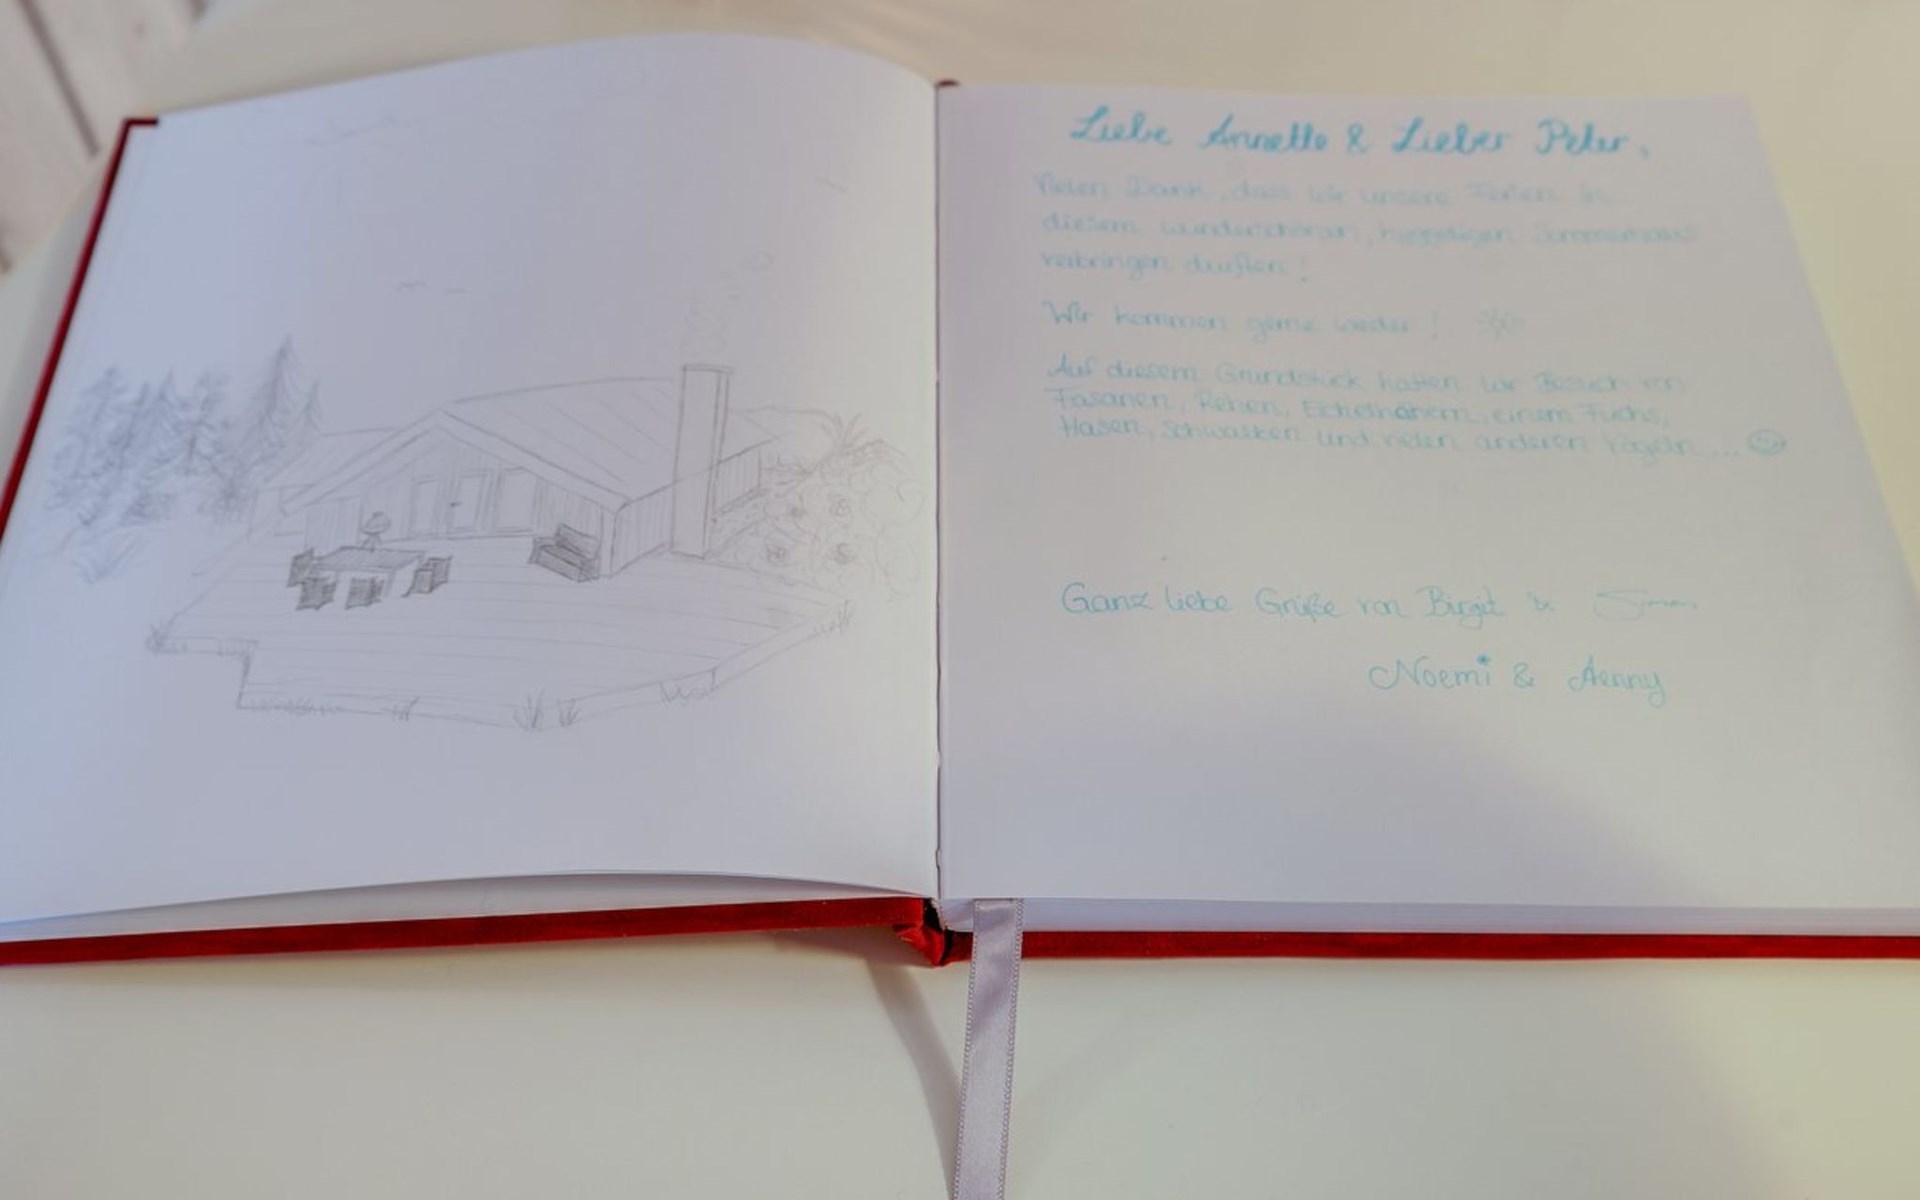 Liebe Annette & Lieber Peter,
Vielen Dank, dass wir unsere Ferien in
diesem wunderschönen, hyggeligen Sommerhaus
verbringen durften!
Wir kommen gerne wieder!
Auf diesem Grundstück hatten wir Besuch von
Fasanen, Rehen, Eichelhähern, einem Fuchs,
Hasen, Schwalben und vielen anderen Vögeln...
Ganz liebe Grüße von Birgit &
Noemi & Aenny